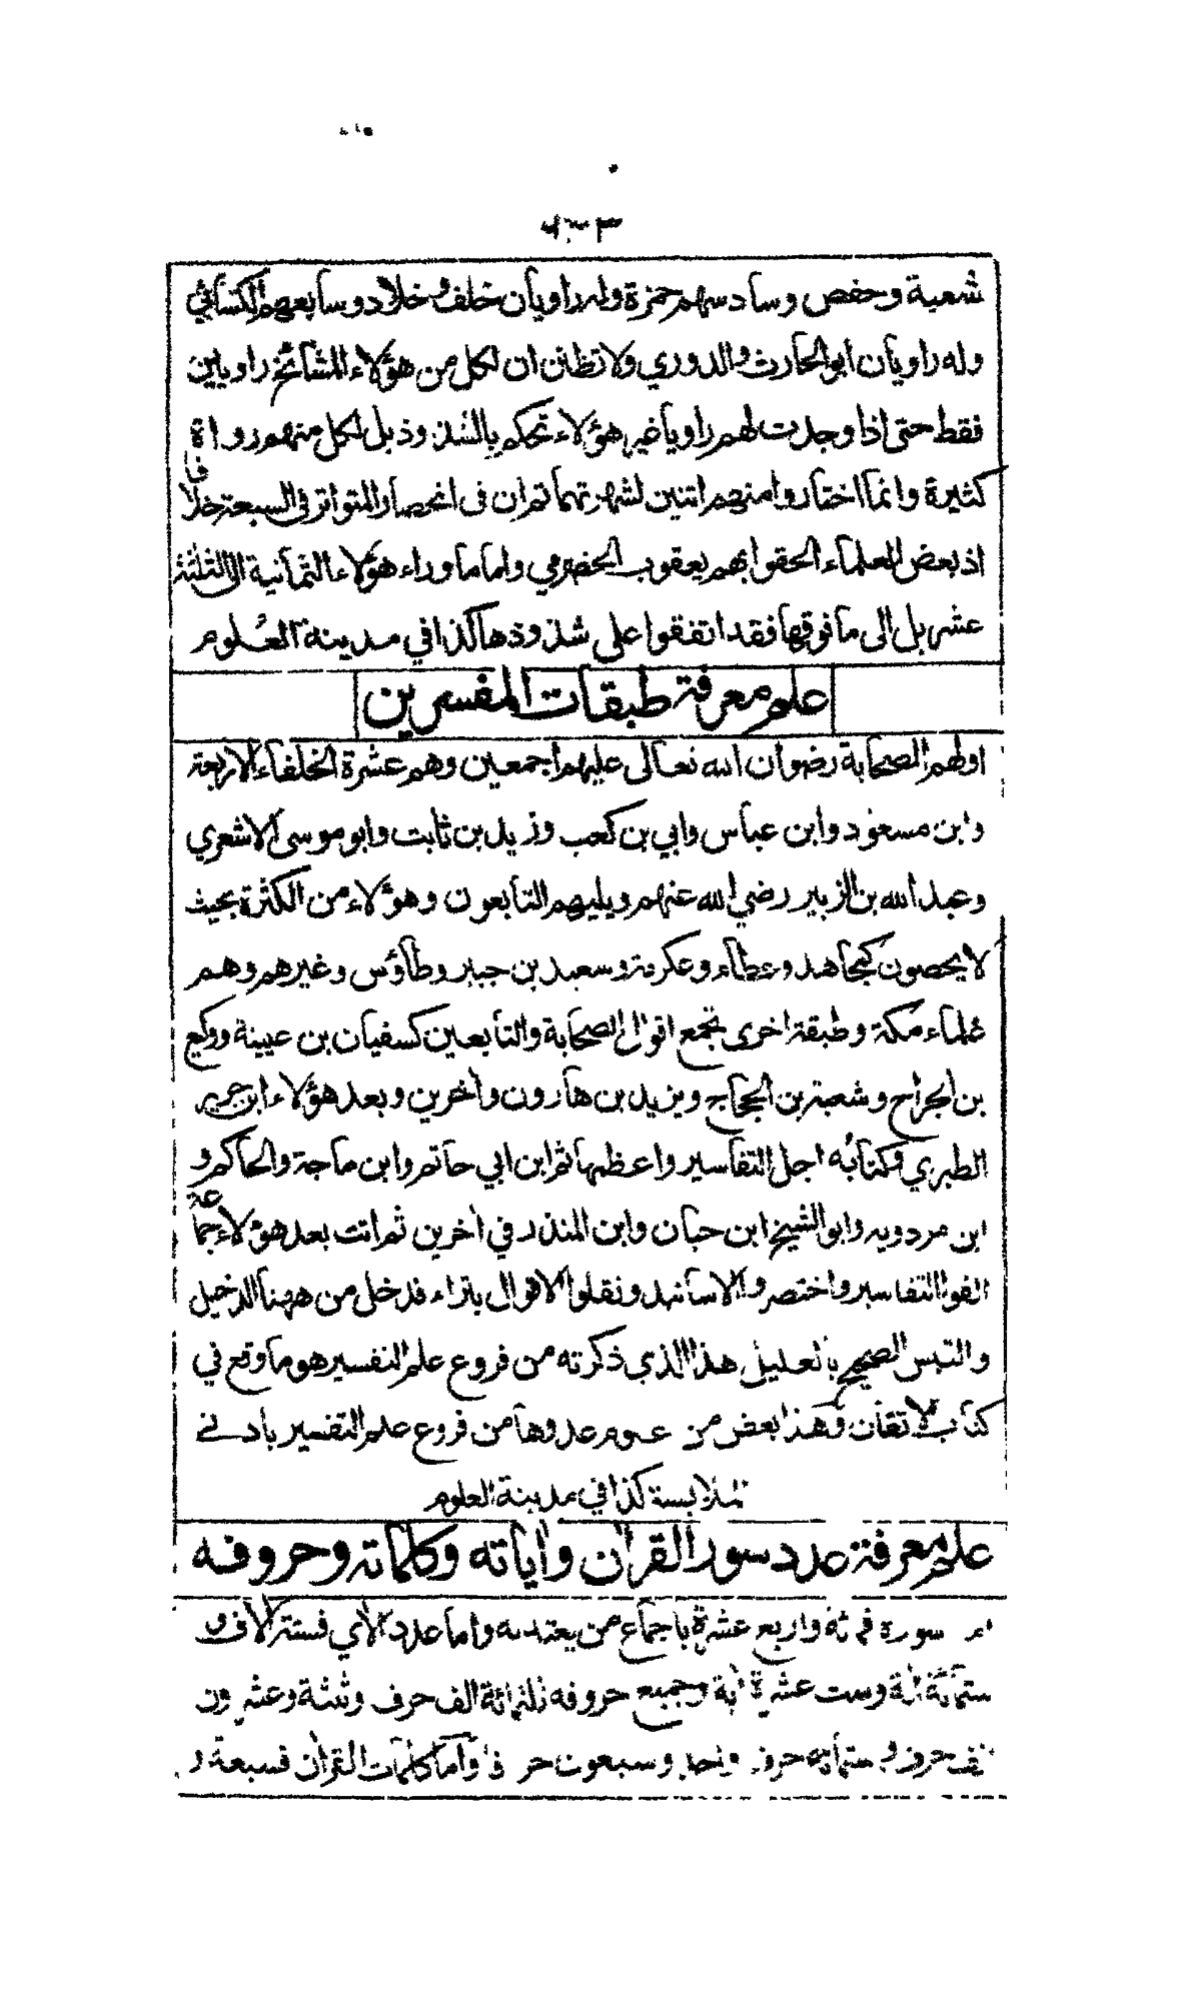 ٦٣٣
شعبة وحفص وسادسهم حمزة وله راويان خلف وخلاد وسابعهم الكسائي
وله راويان ابو الحارث والدوري ولا تظنن ان لكل من هؤلاء المشائخ راويين
فقط حتى اذا وجدت لهم راويا غير هؤلاء تحكم بالشذوذ بل لكل منهم رواة
كثيرة وانما اختاروا منهم اثنين لشهرتهما ثم ان في انحصار المتواتر في السبعة خلافا
اذ بعض العلماء الحقوا بهم يعقوب الحضرمي واما ما وراء هؤلاء الثمانية الى الثلثة
عشر بل الى ما فوقها فقد اتفقوا على شذوذها كذا في مدينة العلوم
علم معرفة طبقات المفسرين
اولهم الصحابة رضوان الله تعالى عليهم اجمعين وهم عشرة الخلفاء الاربعة
وابن مسعود وابن عباس وابي بن كعب وزيد بن ثابت وابو موسى الاشعري
وعبد الله بن الزبير رضي الله عنهم ويليهم التابعون وهؤلاء من الكثرة بحيث
لا يحصون كمجاهد وعطاء وعكرمة وسعيد بن جبير وطاؤس وغيرهم وهم
علماء مكة وطبقة اخرى تجمع اقوال الصحابة والتابعين كسفيان بن عيينة ووكيع
بن الجراح وشعبة بن الحجاج ويزيد بن هارون واخرين وبعد هؤلاء ابن جرير
الطبري وكتابُه اجل التفاسير واعظمها ثم ابن ابي حاتم وابن ماجة والحاكم و
ابن مردويه وابو الشيخ ابن حبان وابن المنذر في اخرين ثم اتت بعد هؤلاء جماعة
الفوا التفاسير واختصروا الاسانيد ونقلوا الاقوال بتراء فدخل من ههنا الدخيل
والتبس الصحيح بالعليل هذا الذي ذكرته من فروع علم التفسير هو ما وقع في
كتاب الاتقان وهذا بعض من علوم عدوها من فروع علم التفسير بادنى
ملابسة كذا في مدينة العلوم
علم معرفة عدد سور القران واياته وكلماته وحروفه
سورة فمائة واربع عشرة باجماع من يعتد به واما عدد الاي فستة الاف و
ستمائة اية وست عشرة اية وجميع حروفه ثلثمائة الف حرف وثلثة وعشرون
الف حرف وستمائة حرف واحد وسبعون حرفا واما كلمات القران فسبعة و